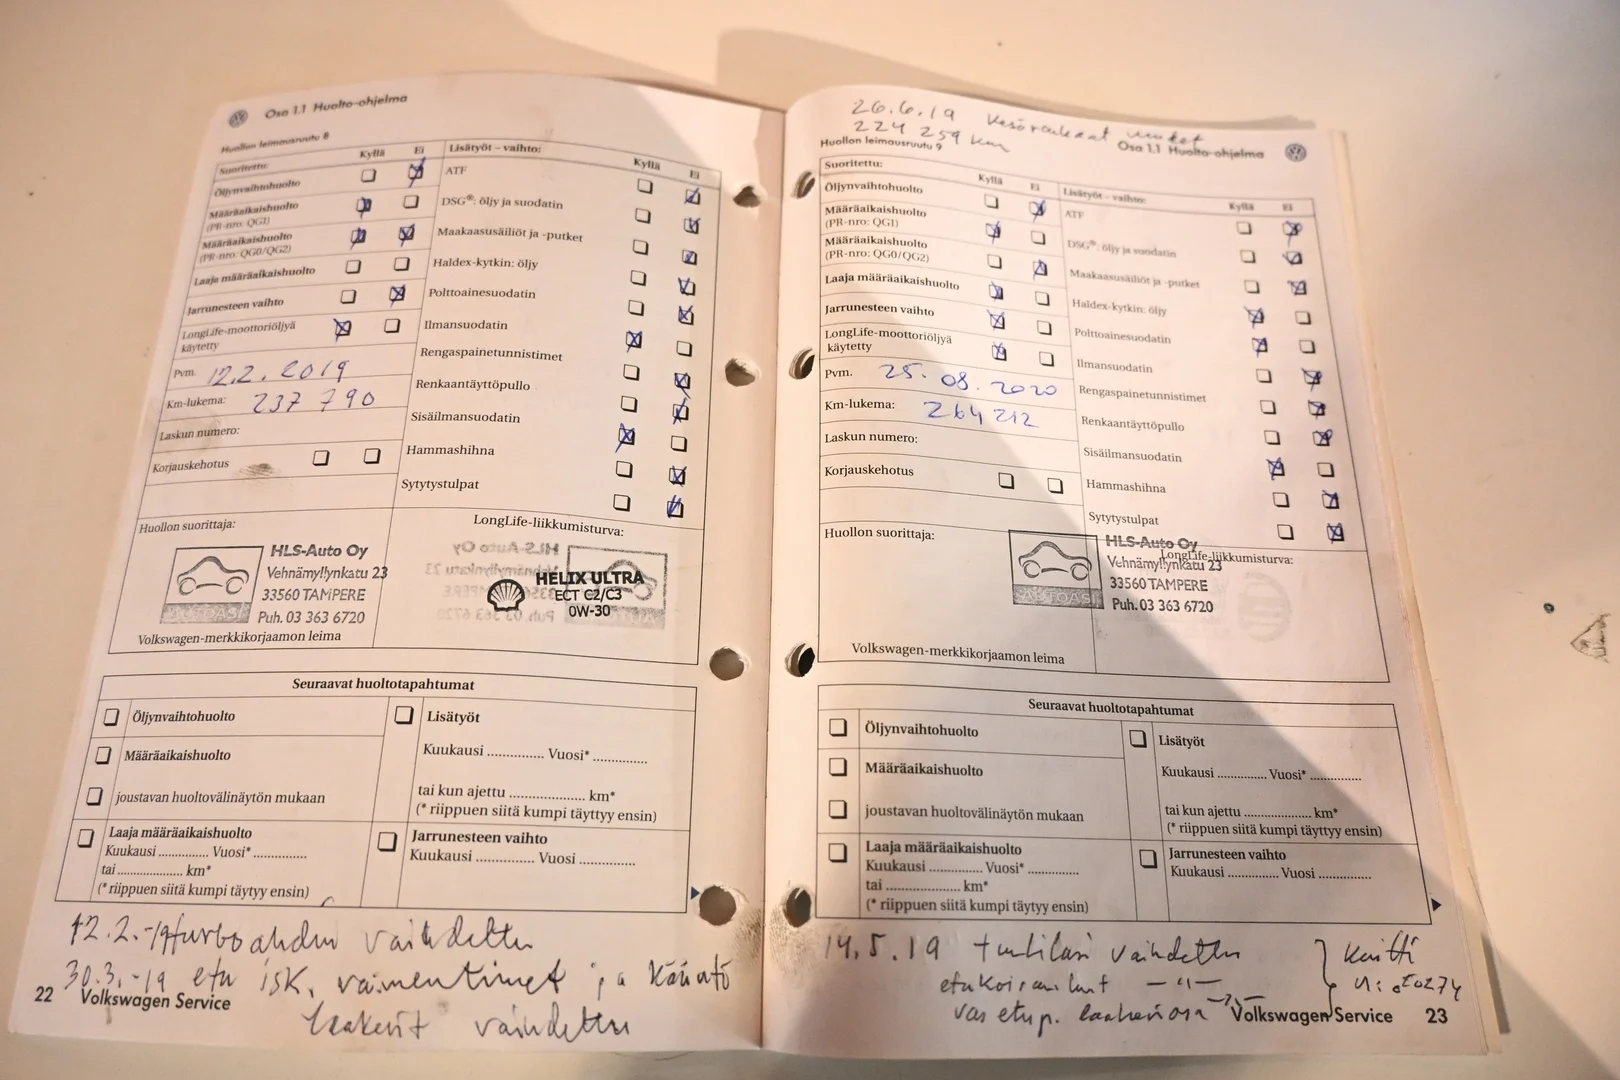 Osa 1.1 Huolto-ohjelma
Huollon leimausruutu 8
Suoritettu:
Kyllä
Ei
Öljynvaihtohuolto
Määräaikaishuolto
(PR-nro: QG1)
Määräaikaishuolto
(PR-nro: QG0/QG2)
Laaja määräaikaishuolto
Jarrunesteen vaihto
LongLife-moottoriöljyä
käytetty
Pvm. 12.2.2019
Km-lukema: 237 790
Laskun numero:
Korjauskehotus
Lisätyöt – vaihto:
Kyllä
Ei
ATF
DSG®: öljy ja suodatin
Maakaasusäiliöt ja -putket
Haldex-kytkin: öljy
Polttoainesuodatin
Ilmansuodatin
Rengaspainetunnistimet
Renkaantäyttöpullo
Sisäilmansuodatin
Hammashihna
Sytytystulpat
Huollon suorittaja:
HLS-Auto Oy
Vehnämyllynkatu 23
33560 TAMPERE
Puh. 03 363 6720
AUTOASI
Volkswagen-merkkikorjaamon leima
LongLife-liikkumisturva:
HLS-Auto Oy
HELIX ULTRA
ECT C2/C3
0W-30
Seuraavat huoltotapahtumat
Öljynvaihtohuolto
Määräaikaishuolto
joustavan huoltovälinäytön mukaan
Laaja määräaikaishuolto
Kuukausi .............. Vuosi* ...............
tai .................... km*
(* riippuen siitä kumpi täytyy ensin)
Lisätyöt
Kuukausi .............. Vuosi* ...............
tai kun ajettu .................... km*
(* riippuen siitä kumpi täyttyy ensin)
Jarrunesteen vaihto
Kuukausi .............. Vuosi ...............
12.2.-19 turbo ahdin vaihdettu
30.3.-19 etu isk. vaimentimet ja
laakerit vaihdettu
22 Volkswagen Service
26.6.19 Kesärenkaat uudet
224 259 km
Huollon leimausruutu 9
Osa 1.1 Huolto-ohjelma
Suoritettu:
Kyllä
Ei
Öljynvaihtohuolto
Määräaikaishuolto
(PR-nro: QG1)
Määräaikaishuolto
(PR-nro: QG0/QG2)
Laaja määräaikaishuolto
Jarrunesteen vaihto
LongLife-moottoriöljyä
käytetty
Pvm. 25.08.2020
Km-lukema: 264 212
Laskun numero:
Korjauskehotus
Lisätyöt – vaihto:
Kyllä
Ei
ATF
DSG®: öljy ja suodatin
Maakaasusäiliöt ja -putket
Haldex-kytkin: öljy
Polttoainesuodatin
Ilmansuodatin
Rengaspainetunnistimet
Renkaantäyttöpullo
Sisäilmansuodatin
Hammashihna
Sytytystulpat
Huollon suorittaja:
HLS-Auto Oy
Vehnämyllynkatu 23
33560 TAMPERE
Puh. 03 363 6720
AUTOASI
LongLife-liikkumisturva:
Volkswagen-merkkikorjaamon leima
Seuraavat huoltotapahtumat
Öljynvaihtohuolto
Määräaikaishuolto
joustavan huoltovälinäytön mukaan
Laaja määräaikaishuolto
Kuukausi .............. Vuosi* ...............
tai .................... km*
(* riippuen siitä kumpi täytyy ensin)
Lisätyöt
Kuukausi .............. Vuosi* ...............
tai kun ajettu .................... km*
(* riippuen siitä kumpi täyttyy ensin)
Jarrunesteen vaihto
Kuukausi .............. Vuosi ...............
14.5.19 tuulilasi vaihdettu
vas etup.
Volkswagen Service 23